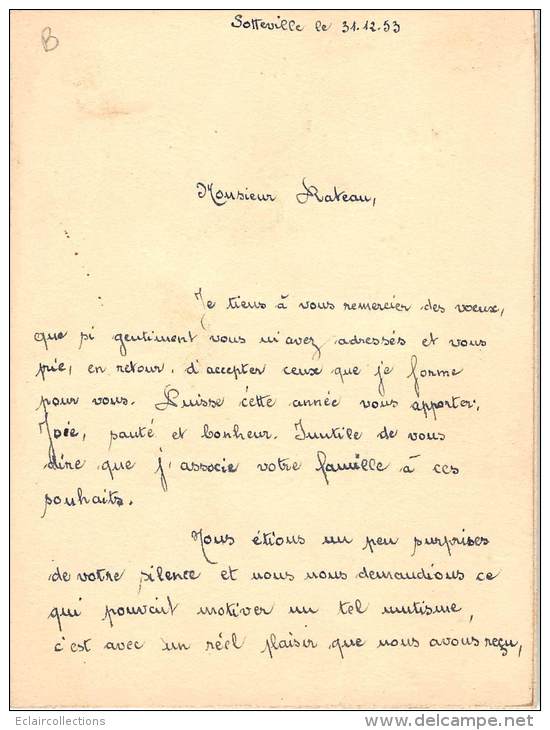 B
Sotteville le 31.12.53
Monsieur Rateau,
Je tiens à vous remercier des vœux,
que si gentiment vous m'avez adressés et vous
prie, en retour, d'accepter ceux que je forme
pour vous. Puisse cette année vous apporter,
Joie, santé et bonheur. Inutile de vous
dire que j'associe votre famille à ces
souhaits.
Nous étions un peu surprises
de votre silence et nous nous demandions ce
qui pouvait motiver un tel mutisme,
c'est avec un réel plaisir que nous avons reçu,
Eclaircollections
www.delcampe.net